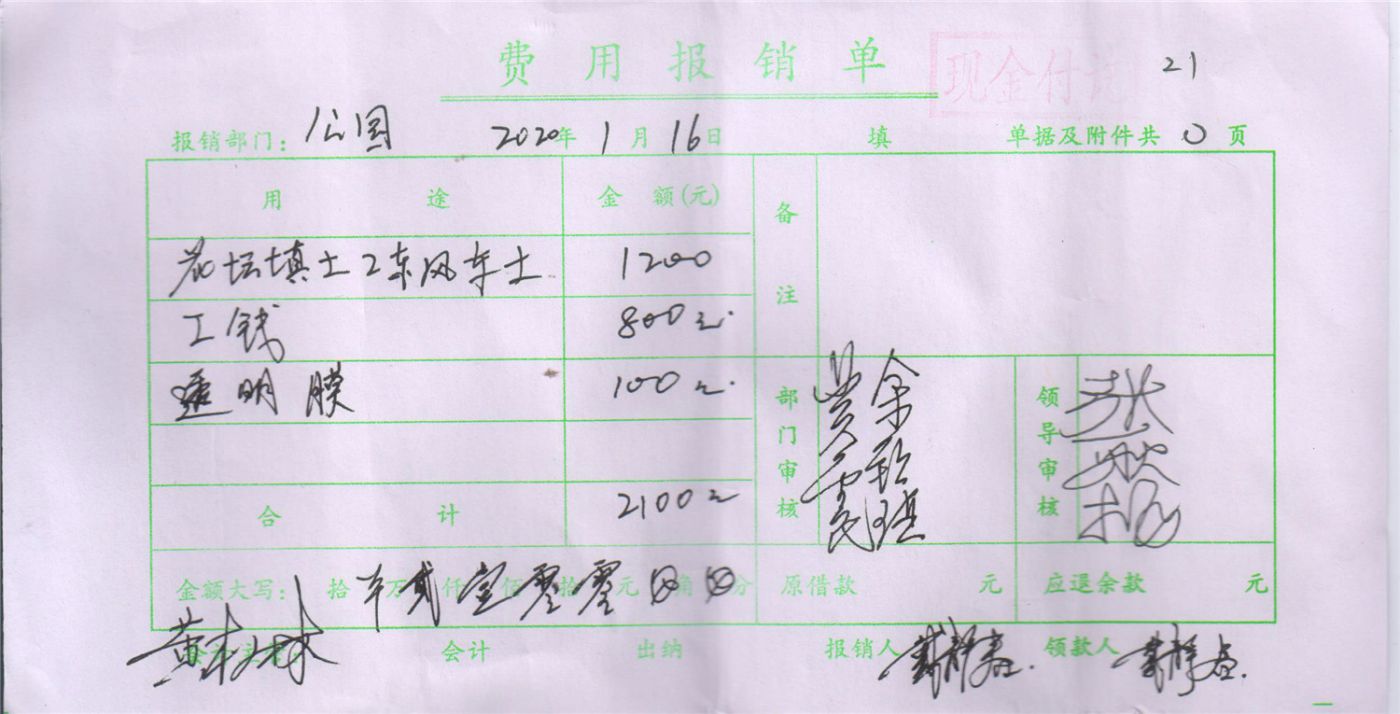 费用报销单 现金付讫 21
报销部门: 公园 2020年1月16日 填 单据及附件共0页
用途 金额(元) 备注
花坛填土2东风车土 1200
工钱 800元.
透明膜 100元.
部门审核 领导审核
合计 2100元
金额大写: 拾 万贰仟壹佰零拾零元 角 分 原借款 元 应退余款 元
会计 出纳 报销人 领款人